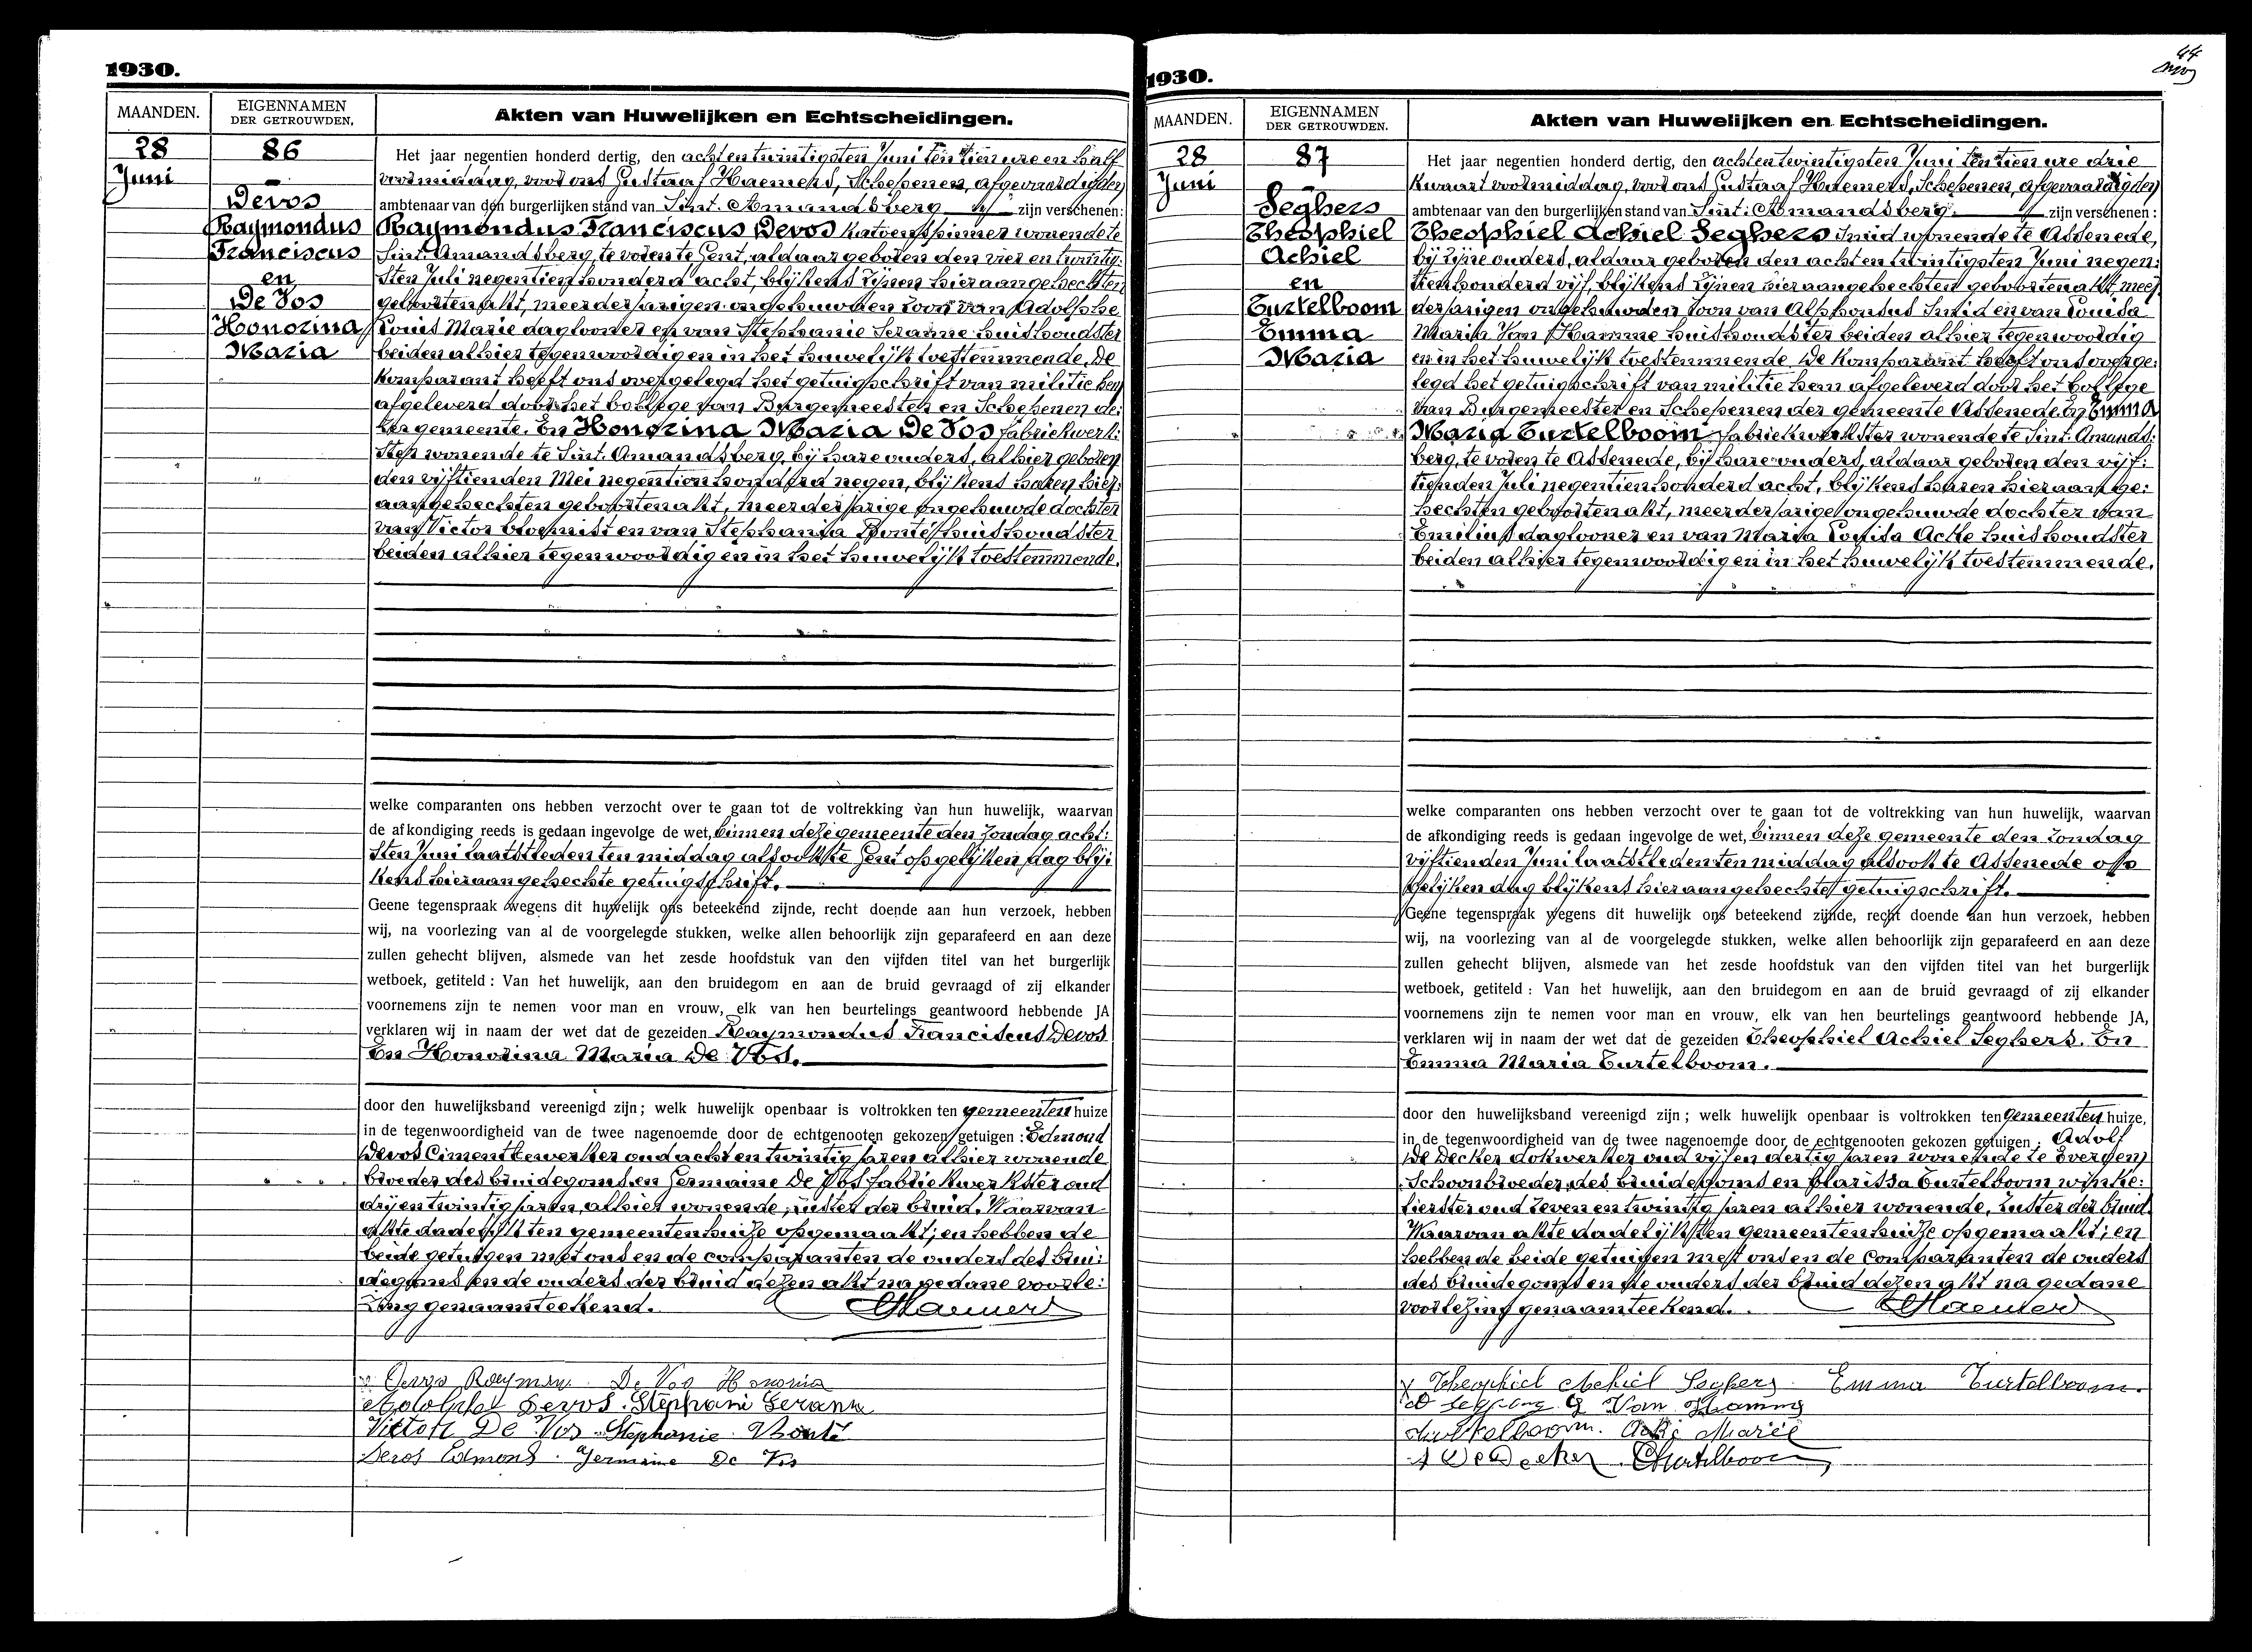 1930.
MAANDEN.
EIGENNAMEN
DER GETROUWDEN.
Akten van Huwelijken en Echtscheidingen.
28
Juni
86
Devos
Raymondus
Franciscus
en
De Vos
Honorina
Maria
Het jaar negentien honderd dertig, den achtentwintigsten Juni ten tien ure en half
voormiddag, voor ons Gustaaf Haemers, Schepenen, afgevaardigden
ambtenaar van den burgerlijken stand van Sint. Amandsberg zijn verschenen:
Raymondus Franciscus Devos Katoenspinner wonende te
Sint. Amandsberg, te voren te Gent, aldaar geboren den vier en twintig:
sten Juli negentien honderd acht, blijkens zijnen hieraangehechten
geboortenakt, meerderjarigen ongehuwden zoon van Adolphe
Louis Marie daglooner en van Stephanie Seranne huishoudster
beiden alhier tegenwoordig en in het huwelijk toestemmende. De
komparant heeft ons overgelegd het getuigschrift van militie hem
afgeleverd door het College van Burgemeester en Schepenen de:
zer gemeente. En Honorina Maria De Vos fabriekwerk:
ster wonende te Sint. Amandsberg, bij hare ouders, alhier geboren
den vijftienden Mei negentien honderd negen, blijkens haren hier:
aangehechten geboortenakt, meerderjarige ongehuwde dochter
van Victor bloemist en van Stephania Bonte huishoudster
beiden alhier tegenwoordig en in het huwelijk toestemmende.
welke comparanten ons hebben verzocht over te gaan tot de voltrekking van hun huwelijk, waarvan
de afkondiging reeds is gedaan ingevolge de wet, binnen deze gemeente den Zondag acht:
sten Juni laatstleden ten middag alsook te Gent op gelijken dag blij:
kens hieraangehechte getuigschrift.
Geene tegenspraak wegens dit huwelijk ons beteekend zijnde, recht doende aan hun verzoek, hebben
wij, na voorlezing van al de voorgelegde stukken, welke allen behoorlijk zijn geparafeerd en aan deze
zullen gehecht blijven, alsmede van het zesde hoofdstuk van den vijfden titel van het burgerlijk
wetboek, getiteld : Van het huwelijk, aan den bruidegom en aan de bruid gevraagd of zij elkander
voornemens zijn te nemen voor man en vrouw, elk van hen beurtelings geantwoord hebbende JA
verklaren wij in naam der wet dat de gezeiden Raymondus Franciscus Devos
En Honorina Maria De Vos.
door den huwelijksband vereenigd zijn; welk huwelijk openbaar is voltrokken ten gemeenten huize
in de tegenwoordigheid van de twee nagenoemde door de echtgenooten gekozen getuigen : Edmond
Devos Cimentbewerker oud acht en twintig jaren alhier wonende
broeder des bruidegoms en Germaine De Vos fabriekwerkster oud
drij en twintig jaren, alhier wonende, zuster der bruid. Waarvan
akte dadelijk ten gemeentenhuize opgemaakt; en hebben de
beide getuigen met ons en de comparanten de ouders des brui:
degoms en de ouders der bruid dezen akt na gedane voorle:
zing genaamteekend. GHaemers
Devos Raymon De Vos Honoria
Adolphe Devos. Stephani Seranne
Victor De Vos Stephanie Bonte
Devos Edmond. Germaine De Vos
1930.
44
MAANDEN.
EIGENNAMEN
DER GETROUWDEN.
Akten van Huwelijken en Echtscheidingen.
28
Juni
87
Seghers
Theophiel
Achiel
en
Turtelboom
Emma
Maria
Het jaar negentien honderd dertig, den achtentwintigsten Juni ten tien ure drie
kwaart voormiddag, voor ons Gustaaf Haemers, Schepenen, afgevaardigden
ambtenaar van den burgerlijken stand van Sint: Amandsberg. zijn verschenen :
Theophiel Achiel Seghers Smid wonende te Assenede,
bij zijne ouders, aldaar geboren den acht en twintigsten Juni negen:
tien honderd vijf, blijkens zijnen hieraangehechten geboortenakt, meer
derjarigen ongehuwden zoon van Alphonsus Smid en van Louisa
Maria Van Hamme huishoudster beiden alhier tegenwoordig
en in het huwelijk toestemmende. De komparant heeft ons overge:
legd het getuigschrift van militie hem afgeleverd door het College
van Burgemeester en Schepenen der gemeente Assenede. En Emma
Maria Turtelboom fabriekwerkster wonende te Sint. Amands:
berg, te voren te Assenede, bij hare ouders, aldaar geboren den vijf:
tienden Juli negentien honderd acht, blijkens haren hieraange:
hechten geboortenakt, meerderjarige ongehuwde dochter van
Emilius daglooner en van Maria Louisa Acke huishoudster
beiden alhier tegenwoordig en in het huwelijk toestemmende.
welke comparanten ons hebben verzocht over te gaan tot de voltrekking van hun huwelijk, waarvan
de afkondiging reeds is gedaan ingevolge de wet, binnen deze gemeente den zondag
vijftienden Juni laatstleden ten middag alsook te Assenede op
gelijken dag blijkens hieraangehechte getuigschrift.
Geene tegenspraak wegens dit huwelijk ons beteekend zijnde, recht doende aan hun verzoek, hebben
wij, na voorlezing van al de voorgelegde stukken, welke allen behoorlijk zijn geparafeerd en aan deze
zullen gehecht blijven, alsmede van het zesde hoofdstuk van den vijfden titel van het burgerlijk
wetboek, getiteld : Van het huwelijk, aan den bruidegom en aan de bruid gevraagd of zij elkander
voornemens zijn te nemen voor man en vrouw, elk van hen beurtelings geantwoord hebbende JA,
verklaren wij in naam der wet dat de gezeiden Theophiel Achiel Seghers. En
Emma Maria Turtelboom.
door den huwelijksband vereenigd zijn ; welk huwelijk openbaar is voltrokken ten Gemeenten huize,
in de tegenwoordigheid van de twee nagenoemde door de echtgenooten gekozen getuigen : Adolf
De Decker dokwerker oud vijf en dertig jaren wonende te Evergem
Schoonbroeder des bruidegoms en Clarissa Turtelboom winke:
lierster oud zeven en twintig jaren alhier wonende, zuster der bruid.
Waarvan akte dadelijk ten gemeentenhuize opgemaakt; en
hebben de beide getuigen met ons en de Comparanten de ouders
des bruidegoms en de ouders der bruid dezen akt na gedane
voorlezing genaamteekend. GHaemers
Theophiel Achiel Seghers Emma Turtelboom.
Van Hamme
Acke Marie
A DeDecker CTurtelboom